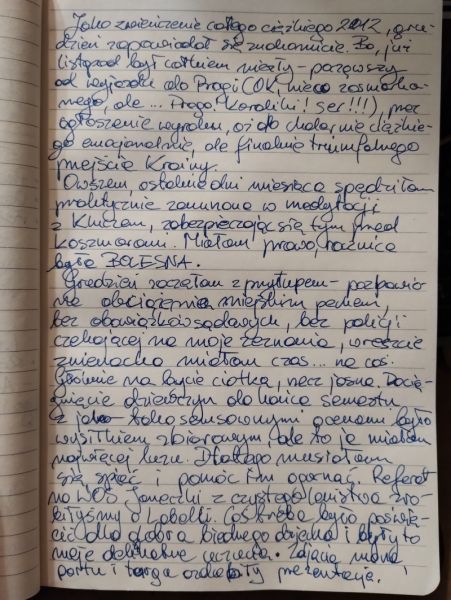 Jako zwieńczenie całego ciężkiego 2012, gru-
dzień zapowiadał się znakomicie. Bo, już
listopad był całkiem miły - począwszy
od wyjazdu do Pragi (OK, nieco zasmarka-
nego, ale... Praga! Knedliki! Ser!!!), przez
ogłoszenie wyroku, aż do cholernie ciężkie-
go emocjonalnie, ale finalnie triumfalnego
przejścia Krainy.
Owszem, ostatnie dni miesiąca spędziłam
praktycznie zanurzona w medytacji
z Kluczem, zabezpieczając się tym przed
koszmarami. Miałam prawo, rocznica
była BOLESNA.
Grudzień zaczęłam z przytupem - pozbawio-
na obciążenia miejskim
bez obowiązków sądowych, bez policji
czekającej na moje zeznania, wreszcie
znienacka miałam czas... na coś.
Głównie na bycie ciotką, rzecz jasna. Docią-
gnięcie dziewczyn do końca semestru
z jako tako sensownymi ocenami było
wysiłkiem zbiorowym, ale to ja miałam
najwięcej luzu. Dlatego musiałam
się spiąć i pomóc im ogarnąć. Referat
na WOS Janeczki z czystego lenistwa zro-
biłyśmy o Coś trzeba było poświę-
cić dla dobra biednego dziecka i były to
moje delikatne uczucia. Zdjęcia
portu i targu ozdobiły prezentację.